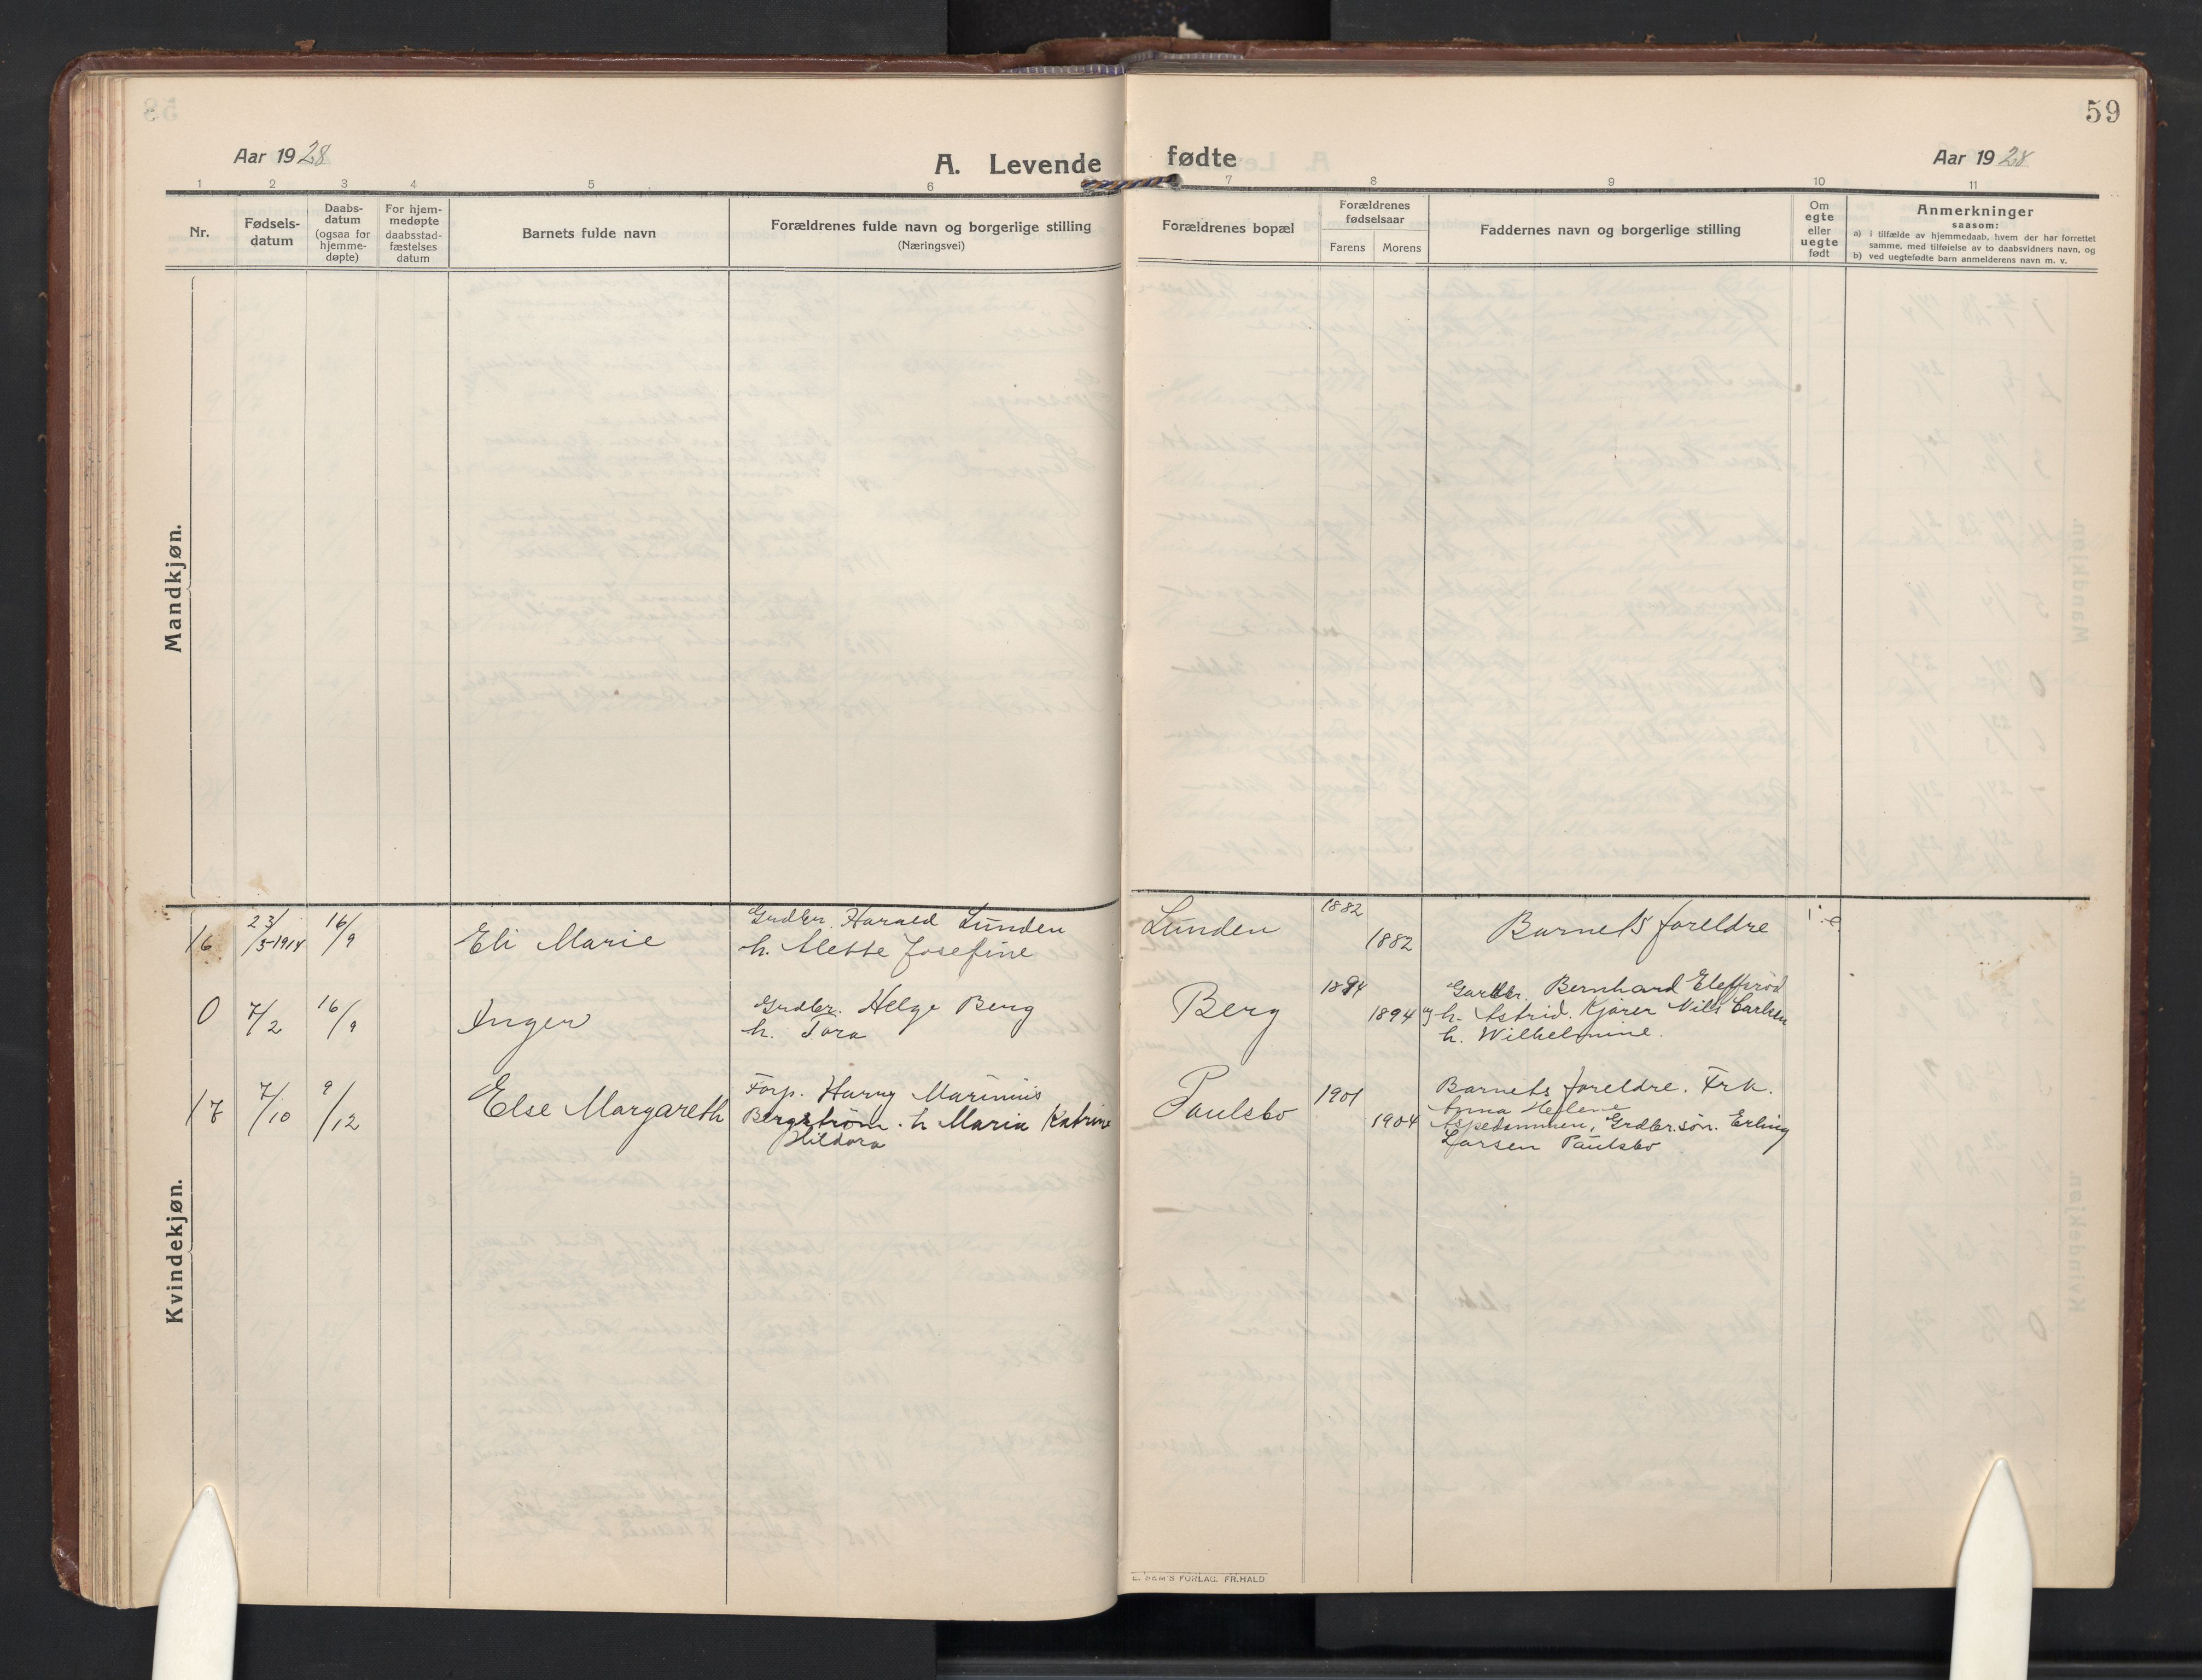 59
Aar 1928
A. Levende fødte
Aar 1928
1 2 3 4 5 6 7 8 9 10 11
Nr.
Fødsels-
datum
Daabs-
datum
(ogsaa for
hjemme-
døpte)
For hjem-
medøpte
daabsstad-
fæstelses
datum
Barnets fulde navn
Forældrenes fulde navn og borgerlige stilling
(Næringsvei)
Forældrenes bopæl
Forældrenes
fødselsaar
Farens Morens
Faddernes navn og borgerlige stilling
Om
egte
eller
uegte
født
Anmerkninger
saasom:
a) i tilfælde av hjemmedaab, hvem der har forrettet
samme, med tilføielse av to daabsvidners navn, og
b) ved uegtefødte barn anmelderens navn m. v.
Mandkjøn.
Kvindekjøn.
16 23/5-1914 16/9 Eli Marie
Grdbr. Harald Lunden
h. Mette Josefine
Lunden 1882 1882 Barnets foreldre
0 7/2 16/9 Inger
Grdbr. Helge Berg
h. Tora
Berg 1894
Bernhard
1894 og h. Astrid. Kjører Nils Carlsen
h. Wilhelmine.
17 7/10 9/12 Else Margareth
Forp. Harry Marinius
Bergström. h Maria Katrine
Hildora
Paulsbo 1901 1904
Barnets foreldre. Frk.
Anna Helene
Aspedammen, Grdbr.søn. Erling
Larsen Paulsbo
E. SEM'S FORLAG, FR.HALD